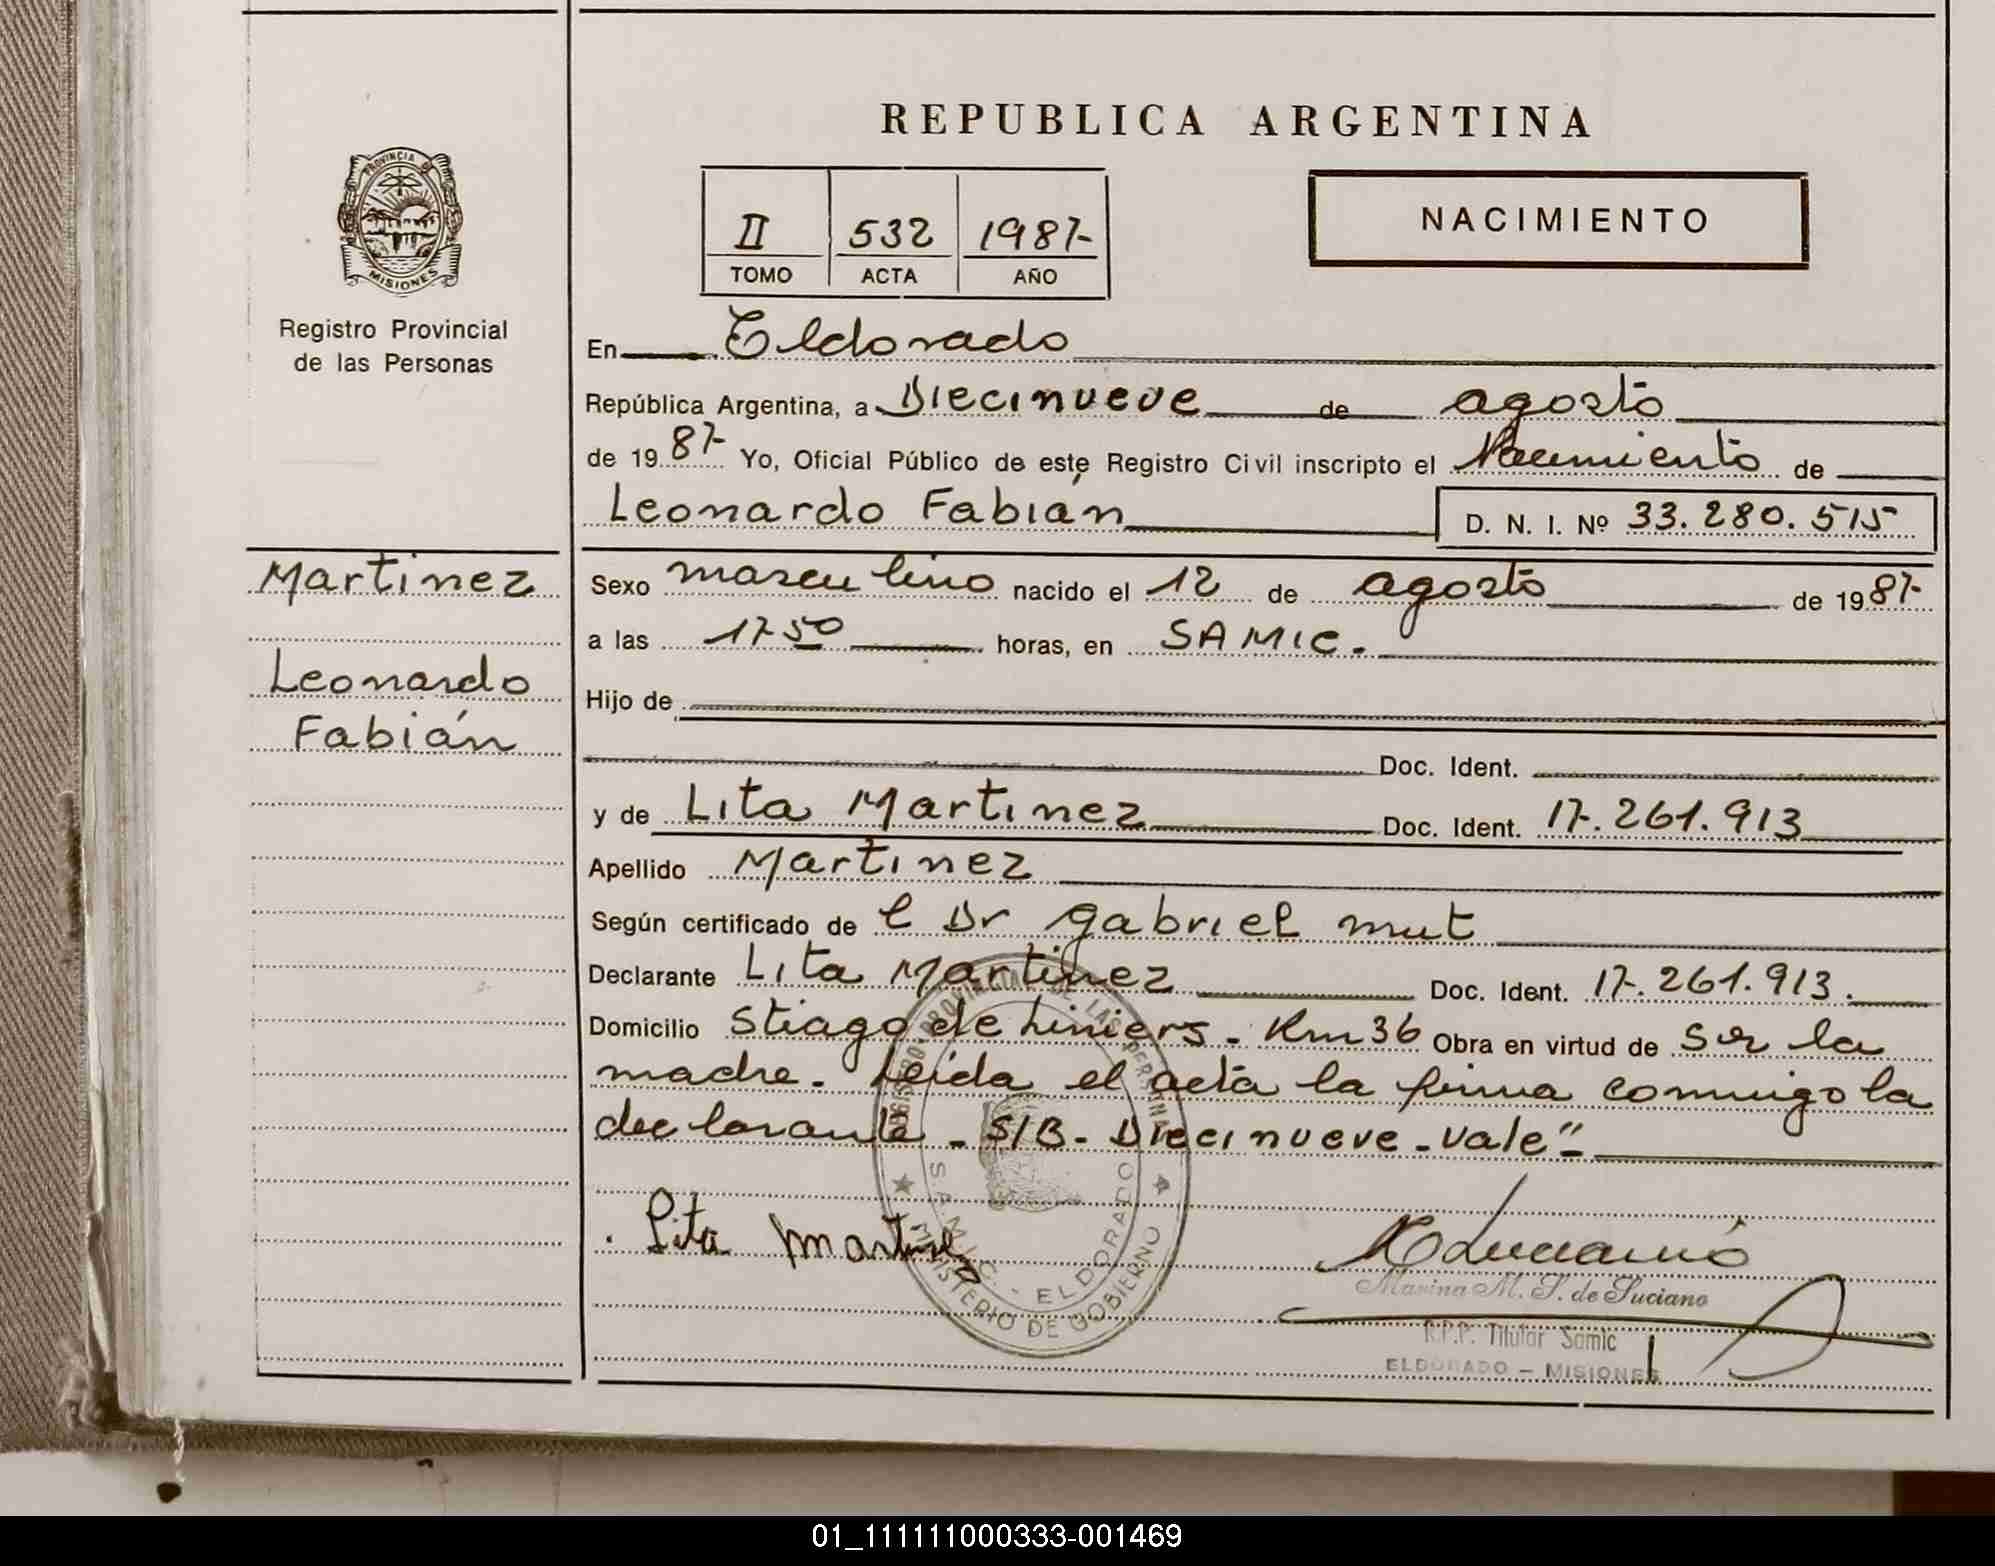 REPUBLICA ARGENTINA
PROVINCIA DE
MISIONES
Registro Provincial
de las Personas
II 532 1987-
TOMO ACTA AÑO
NACIMIENTO
En Eldorado
República Argentina, a Diecinueve de agosto
de 1987- Yo, Oficial Público de este Registro Civil inscripto el Nacimiento de
Leonardo Fabián D. N. I. Nº 33.280.515
Martinez
Leonardo
Fabián
Sexo masculino nacido el 12 de agosto de 1987-
a las 17 50 horas, en SAMIC.
Hijo de
Doc. Ident.
y de Lita Martinez Doc. Ident. 17.261.913
Apellido Martinez
Según certificado de l Dr Gabriel Mut
Declarante Lita Martinez Doc. Ident. 17.261.913.
Domicilio Stiago de Liniers. Km 36 Obra en virtud de ser la
madre. Leida el acta la firma conmigo la
declarante - S/B - Diecinueve - vale"-
Lita Martinez
REGISTRO PROVINCIAL DE LAS PERSONAS
S.A.M.I.C. - ELDORADO
MINISTERIO DE GOBIERNO
Marina M. S. de Luciano
R.P.P. Titular Samic
ELDORADO - MISIONES
01_111111000333-001469